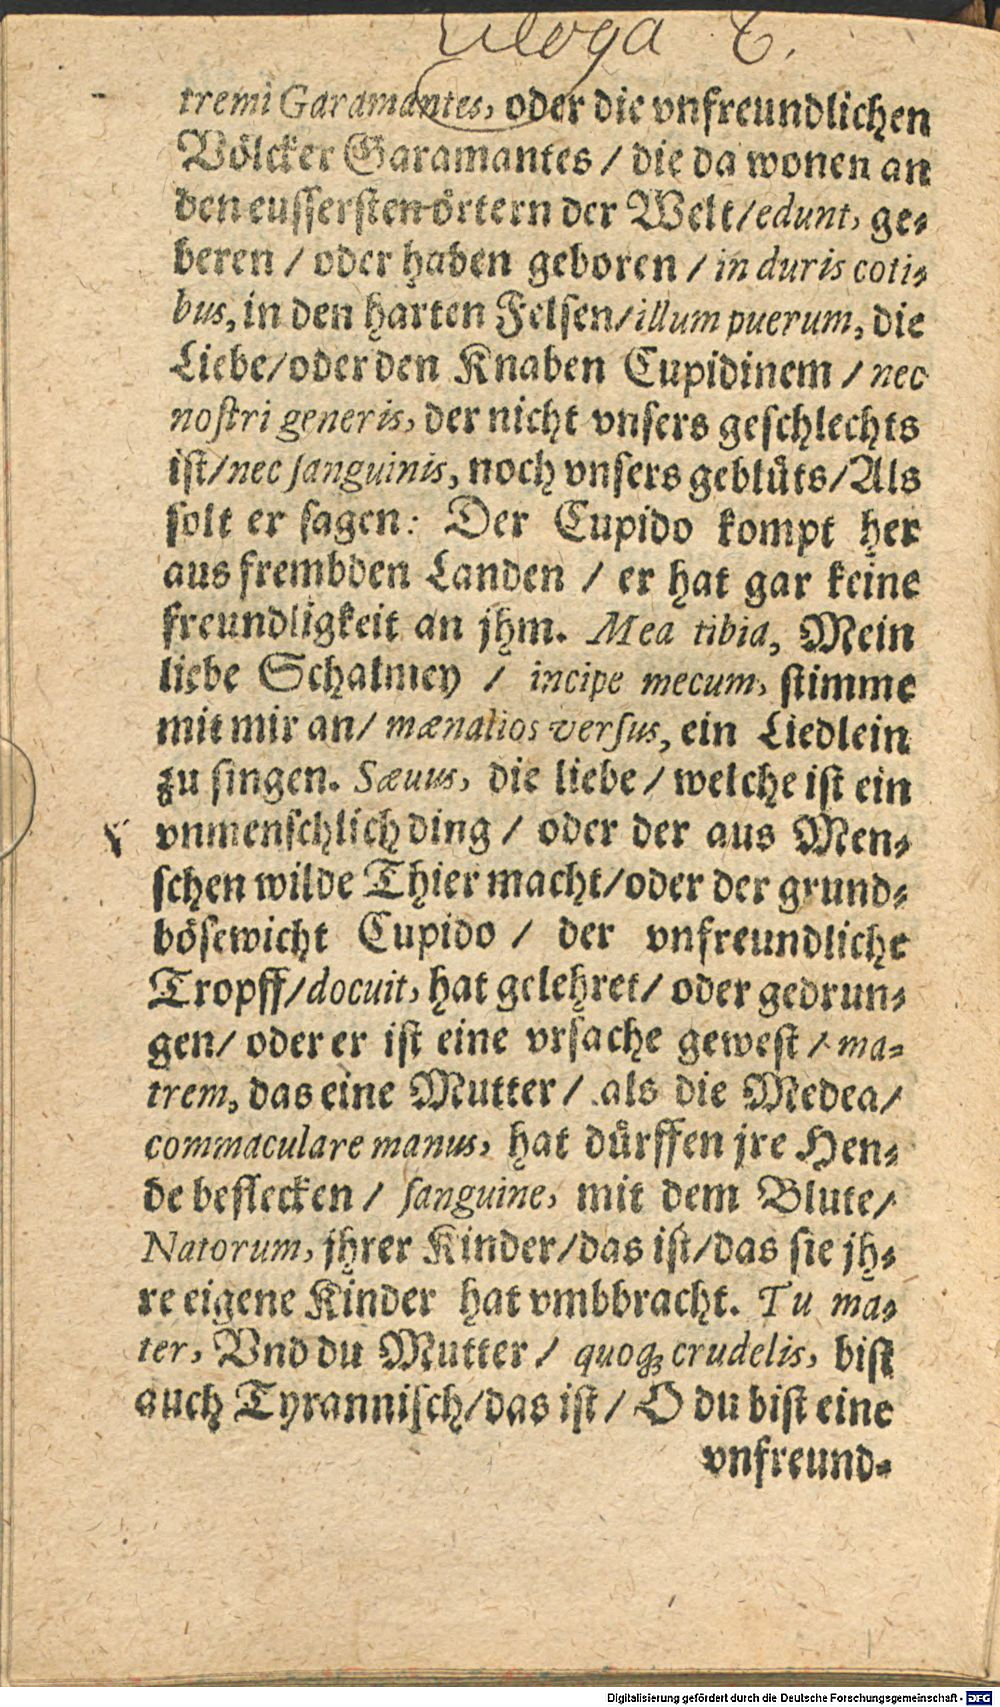 tremi Garamantes, oder die vnfreundlichen
Völcker Garamantes / die da wonen an
den eussersten örtern der Welt/edunt, ge-
beren / oder haben geboren / in duris coti-
bus, in den harten Felsen/illum puerum, die
Liebe/oder den Knaben Cupidinem / nec
nostri generis, der nicht vnsers geschlechts
ist/nec sanguinis, noch vnsers geblüts/Als
solt er sagen: Der Cupido kompt her
aus frembden Landen / er hat gar keine
freundligkeit an jhm. Mea tibia, Mein
liebe Schalmey / incipe mecum, stimme
mit mir an/ mænalios versus, ein Liedlein
zu singen. Sæuus, die liebe / welche ist ein
vnmenschlich ding / oder der aus Men-
schen wilde Thier macht/oder der grund-
bösewicht Cupido / der vnfreundliche
Tropff/docuit, hat gelehret/ oder gedrun-
gen/ oder er ist eine vrsache gewest / ma-
trem, das eine Mutter / als die Medea/
commaculare manus, hat dürffen jre Hen-
de beflecken / sanguine, mit dem Blute/
Natorum, jhrer Kinder/das ist/das sie jh-
re eigene Kinder hat vmbbracht. Tu ma-
ter, Vnd du Mutter / quoq; crudelis, bist
auch Tyrannisch/das ist/ O du bist eine
vnfreund-
Digitalisierung gefördert durch die Deutsche Forschungsgemeinschaft - DFG